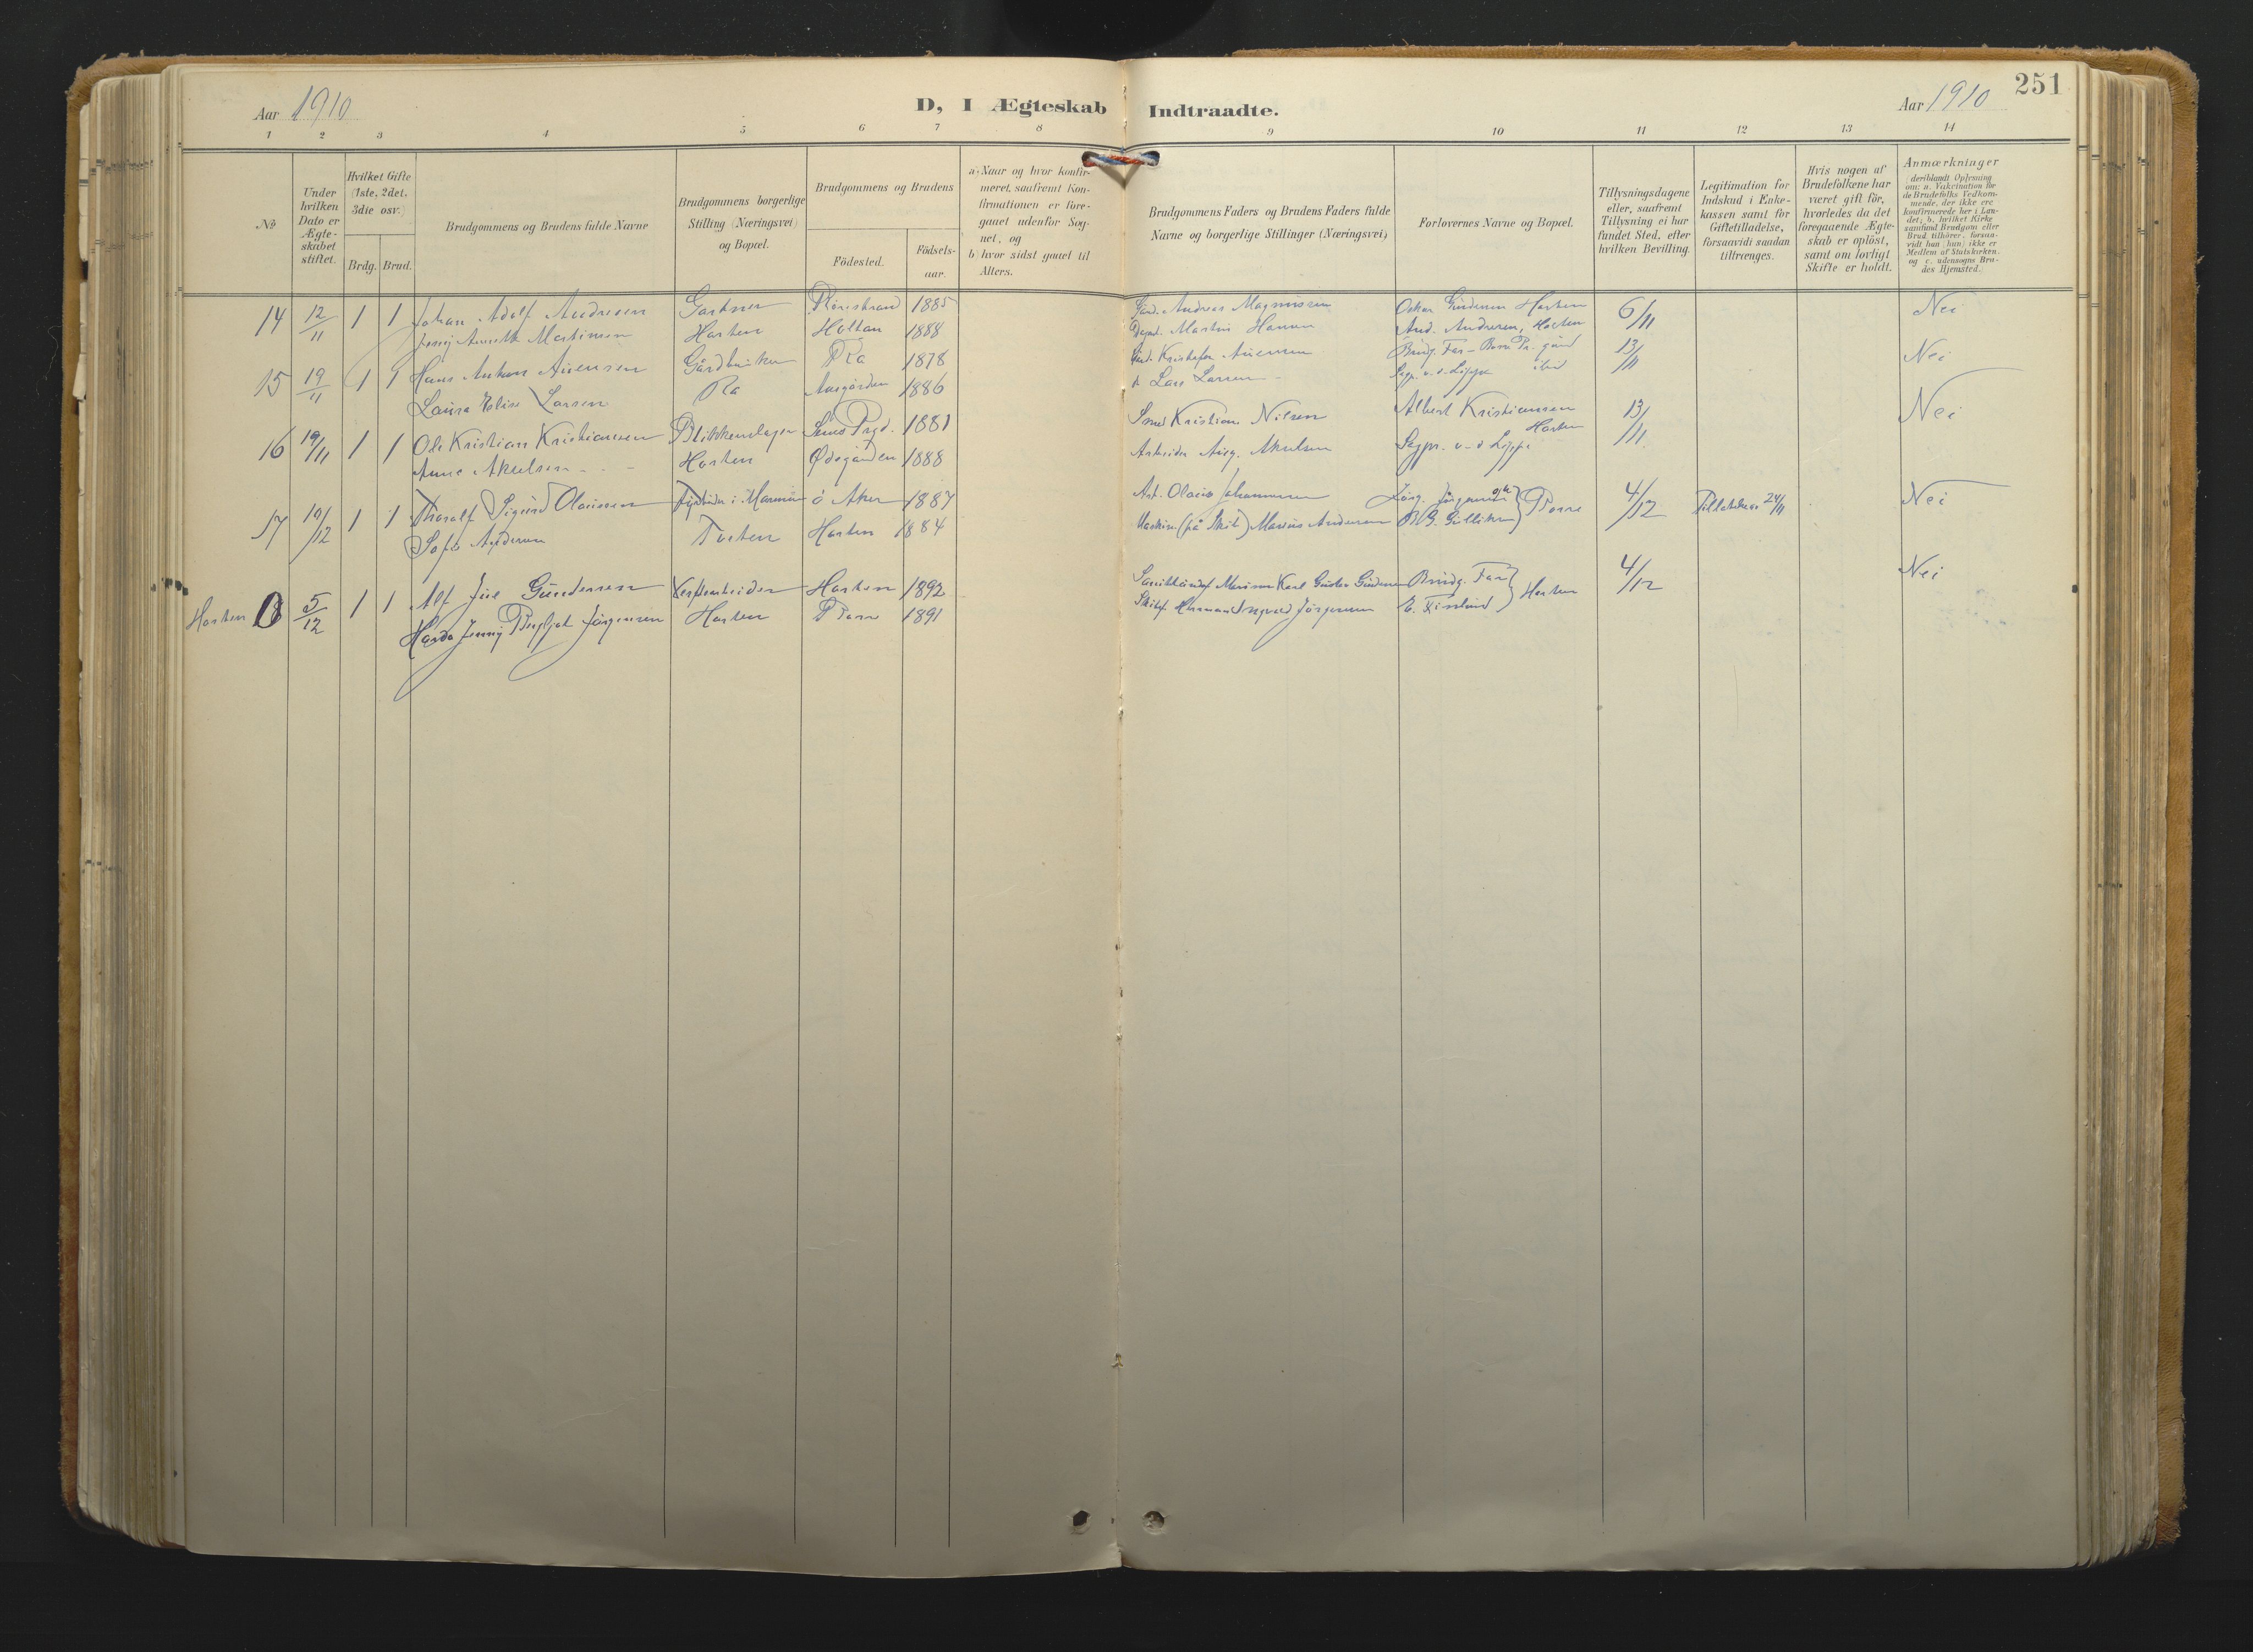 251
Aar 1910
D, I Ægteskab Indtraadte.
Aar 1910
1 2 3 4 5 6 7 8 9 10 11 12 13 14
№
Under
hvilken
Dato er
Ægte-
skabet
stiftet.
Hvilket Gifte
(1ste, 2det.
3die osv.)
Brdg. Brud.
Brudgommens og Brudens fulde Navne
Brudgommens borgerlige
Stilling (Næringsvei)
og Bopæl.
Brudgommens og Brudens
Födested.
Födsels-
aar.
a) Naar og hvor konfir-
meret, saafremt Kon-
firmationen er fore-
gaaet udenfor Sog-
net, og
b) hvor sidst gaaet til
Alters.
Brudgommens Faders og Brudens Faders fulde
Navne og borgerlige Stillinger (Næringsvei)
Forlovernes Navne og Bopæl.
Tillysningsdagene
eller, saafremt
Tillysning ei har
fundet Sted, efter
hvilken Bevilling.
Legitimation for
Indskud i Enke-
kassen samt for
Giftetilladelse,
forsaavidt saadan
tiltrænges.
Hvis nogen af
Brudefolkene har
været gift för,
hvorledes da det
foregaaende Ægte-
skab er oplöst,
samt om lovligt
Skifte er holdt.
Anmærkninger
(deriblandt Oplysning
om: a. Vakcination for
de Brudefolks Vedkom-
mende, der ikke ere
konfirmerede her i Lan-
det; b. hvilket Kirke
samfund Brudgom eller
Brud tilhörer, forsaa-
vidt han (hun) ikke er
Medlem af Statskirken.
og c. udensogns Bru-
des Hjemsted.
14 12/11 1 1 Johan Adolf Andresen Gartner 1885 Gård. Andreas Magnussen Oskar Gundersen Horten 6/11 Nei
Jenny Annette Martinsen Horten Holtan 1888 Martin Hansen And. Andresen, Horten
15 19/11 1 1 Hans Anton Auensen Gårdbruker Ra 1878 Gård. Kristofer Auensen Brudg. Far - Borre Pr. gård 13/11 Nei
Laura Elise Larsen Ra Aasgården 1886 Lars Larsen Sogpr. v. d. Lippe ibid
16 19/11 1 1 Ole Kristian Kristiansen Blikkenslager Sems Prgd. 1881 Smed Kristian Nilsen Albert Kristiansen Horten 13/11 Nei
Anna Akselsen Horten Ødegården 1888 Arbeider Aug. Akselsen Sogpr. v. d. Lippe
17 10/12 1 1 Thoralf Sigurd Olaussen Fyrbøder i Marinen Ø Aker 1887 Arb. Olaus Johannessen Jørg. Jørgensen Borre 4/12 Tilladelse 24/11 Nei
Sofie Andersen Horten Horten 1884 Maskin. (på Skib) Marius Andersen B. G. Gulliksen
Horten 18 5/12 1 1 Alf Juel Gundersen Verftsarbeider Horten 1892 Karl Gustav Gundersen Brudg. Far Horten 4/12 Nei
Jenny Jørgensen Horten Borre 1891 Herman Ingvald Jørgensen